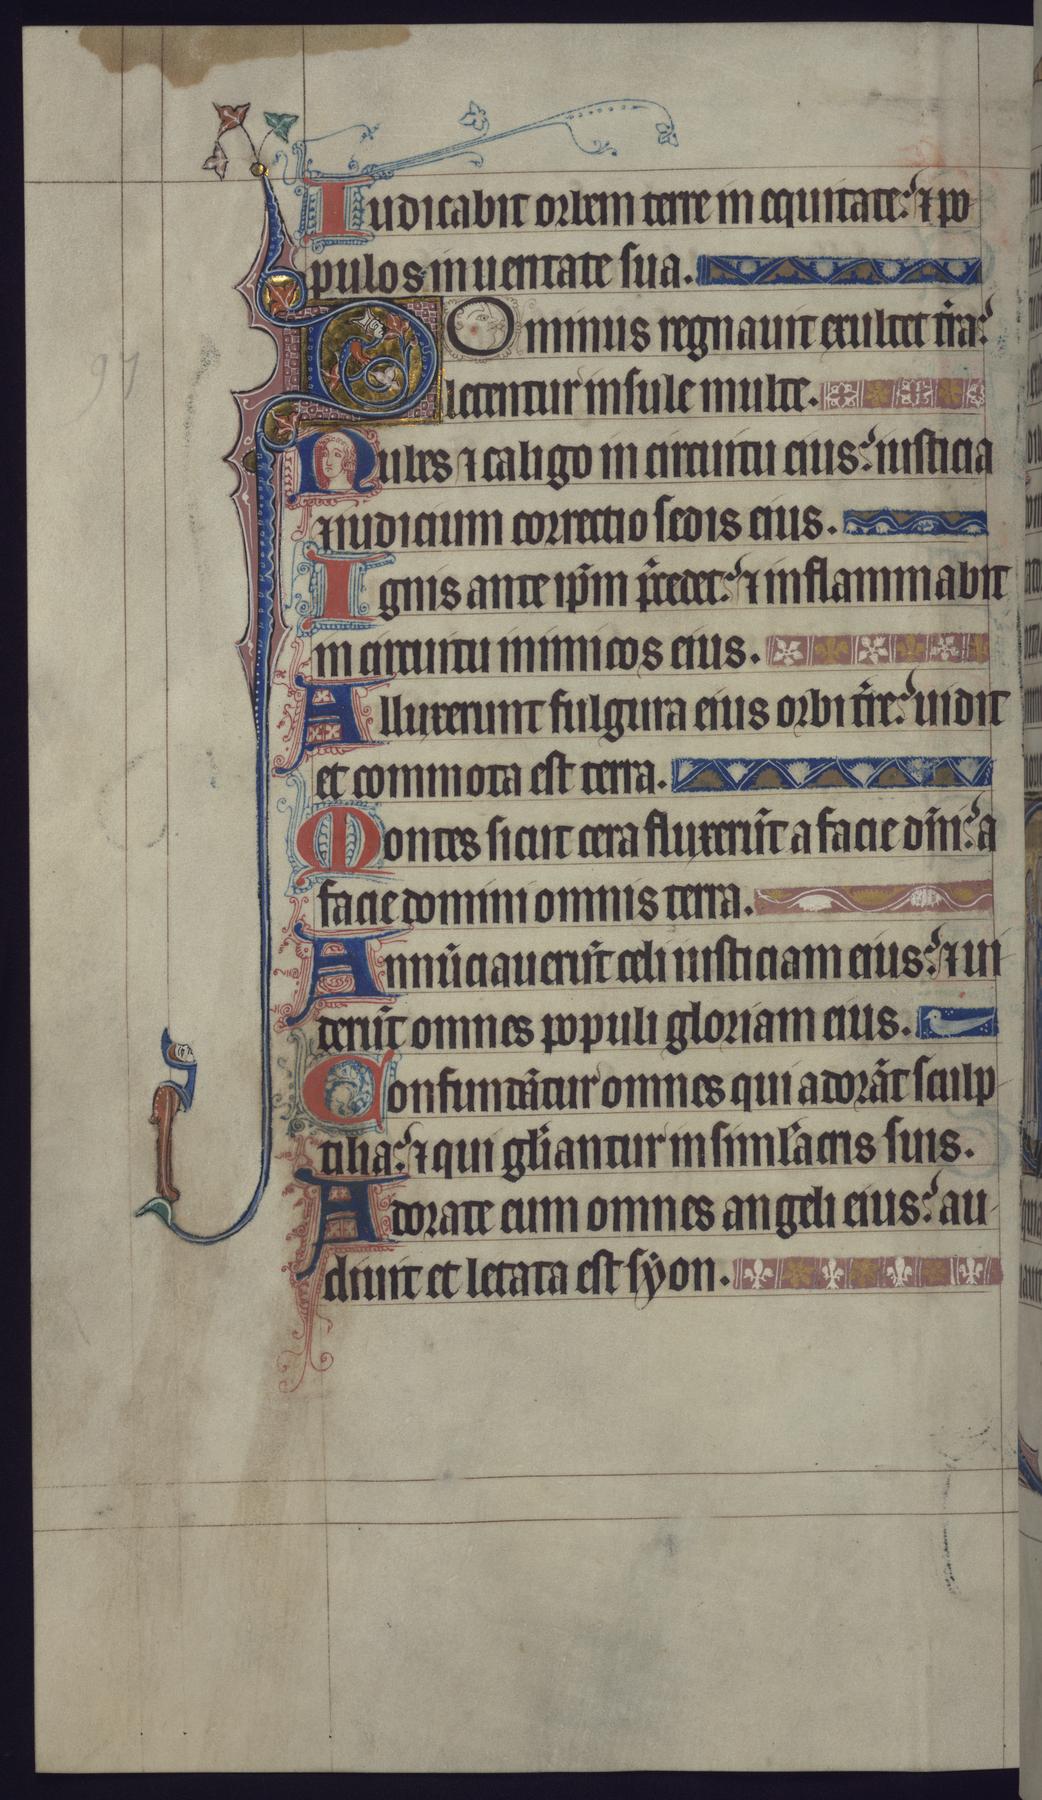 Iudicabit orbem terre in equitate: ⁊ po
pulos in ueritate sua.
Dominus regnauit exultet t̃ra:
letentur insule multe.
Nubes ⁊ caligo in circuitu eius: iusticia
⁊ iudicium correctio sedis eius.
Ignis ante ip̃m p̃cedet: ⁊ inflammabit
in circuitu inimicos eius.
Alluxerunt fulgura eius orbi t̃re: uidit
et commota est terra.
Montes sicut cera fluxerũt a facie dñi: a
facie domini omnis terra.
Annũciauerũt celi iusticiam eius: ⁊ ui
derũt omnes populi gloriam eius.
Confundãtur omnes qui adorãt sculp
tilia: ⁊ qui gl̃iantur in siml'acris suis.
Adorate eum omnes angeli eius: au
diuit et letata est syon.